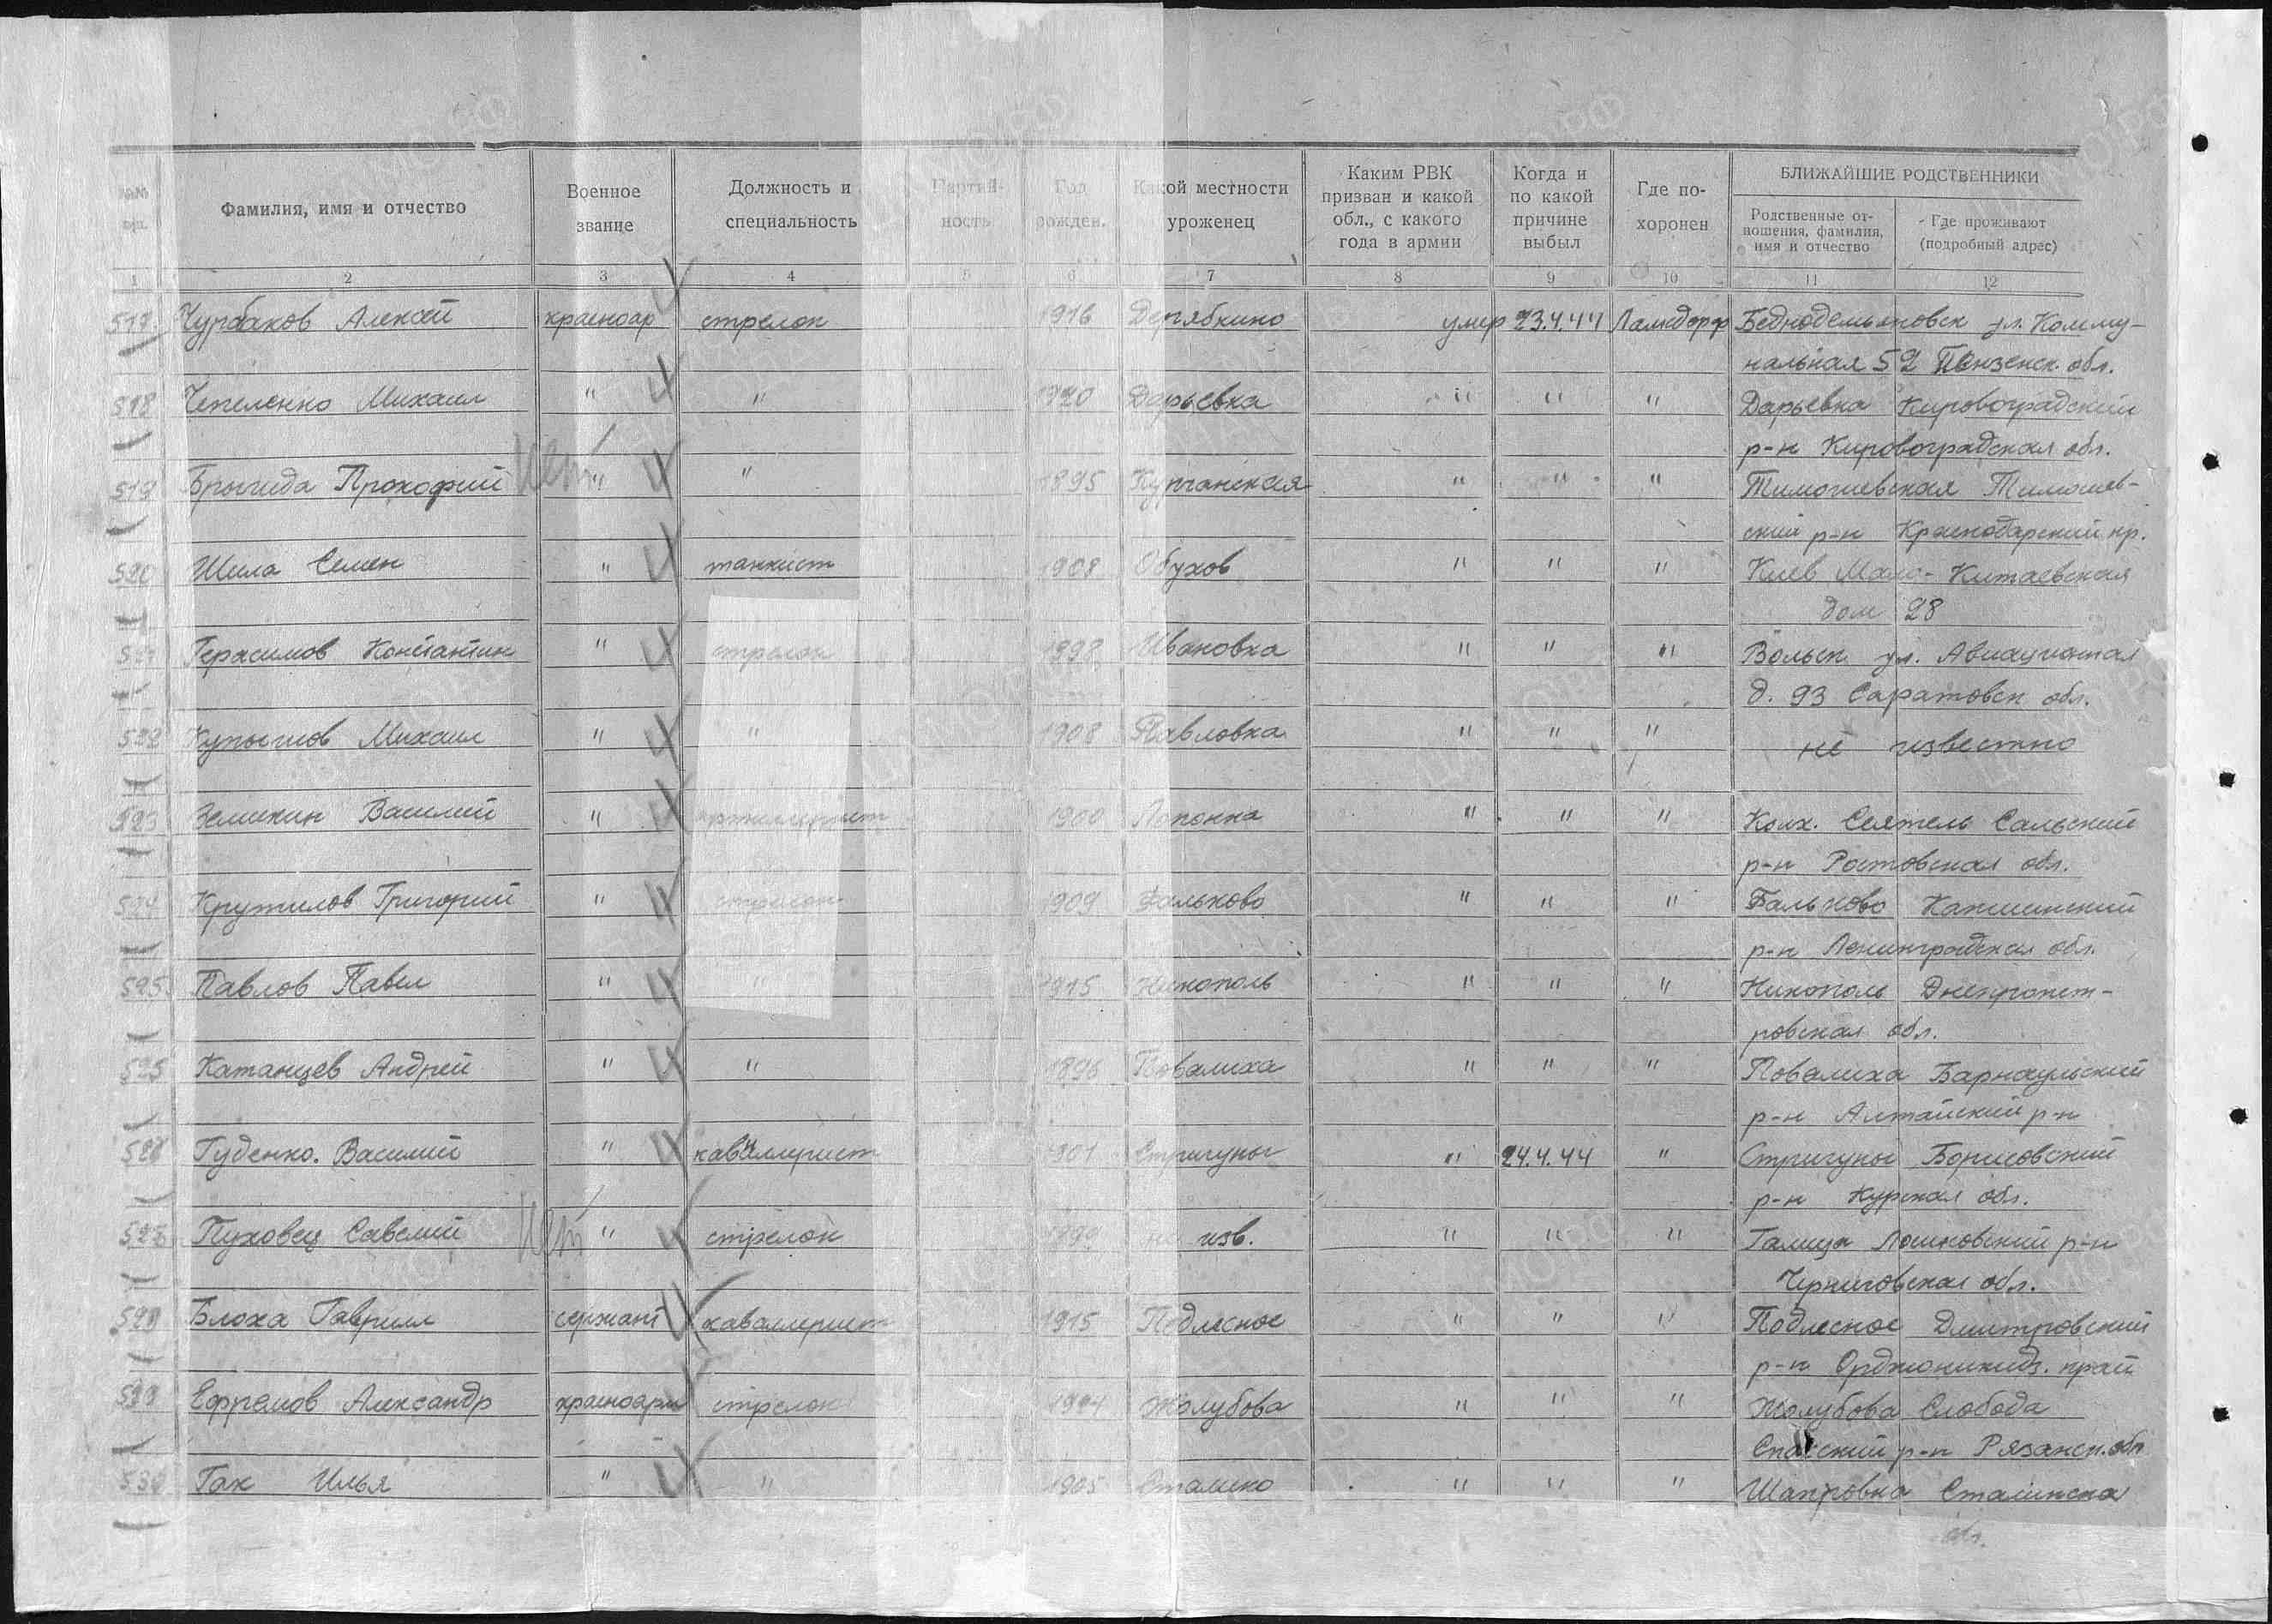 №№ п/п.
Фамилия, имя и отчество
Военное звание
Должность и специальность
Партий-ность
Год рожден.
Какой местности уроженец
Каким РВК призван и какой обл., с какого года в армии
Когда и по какой причине выбыл
Где по-хоронен
БЛИЖАЙШИЕ РОДСТВЕННИКИ
Родственные от-ношения, фамилия, имя и отчество
Где проживают (подробный адрес)
1 2 3 4 5 6 7 8 9 10 11 12
517 Чурбаков Алексей красноар стрелок 1916 Дерябкино умер 23.4.44 Ламсдорф Беднодемьяновск ул. Комму-
нальная 52 Пензенск. обл.
518 Чепеленко Михаил " " 1920 Дарьевка " " " Дарьевка Кировоградский
р-н Кировоградская обл.
519 Брыгида Прокофий нет " " 1895 Курганская " " " Тимошевская Тимошев-
ский р-н Краснодарский кр.
520 Шила Семен " танкист 1908 Обухов " " " Киев Мало-Китаевская
дом 28
521 Герасимов Константин " стрелок 1898 Ивановка " " " Вольск ул.
д. 93 Саратовск обл.
522 Михаил " " 1908 Павловка " " " не известно
523 Земскин Василий " артиллерист 1900 " " " Колх. Сеятель Сальский
р-н Ростовская обл.
524 Крутилов Григорий " стрелок 1909 Фальково " " " Фальково Капшинский
р-н Ленинградская обл.
525 Павлов Павел " " 1915 Никополь " " " Никополь Днепропет-
ровская обл.
Катанцев Андрей " " 1896 Повалиха " " " Повалиха Барнаульский
р-н Алтайский р-н
Гуденко. Василий " каваллерист 1901 Стригуны " 24.4.44 " Стригуны Борисовский
р-н Курская обл.
Пуховец Савелий нет " стрелок 1899 не изв. " " " Галица р-н
Черниговская обл.
Блоха Гаврил сержант каваллерист 1915 Подлесное " " " Подлесное Дмитровский
р-н Орджоникидз. край
Ефремов Александр красноарм стрелок Жолубова " " " Жолубова Слобода
Спасский р-н Рязанск. обл
Гак Илья " " 1905 Сталино " " " Сталинска
обл.